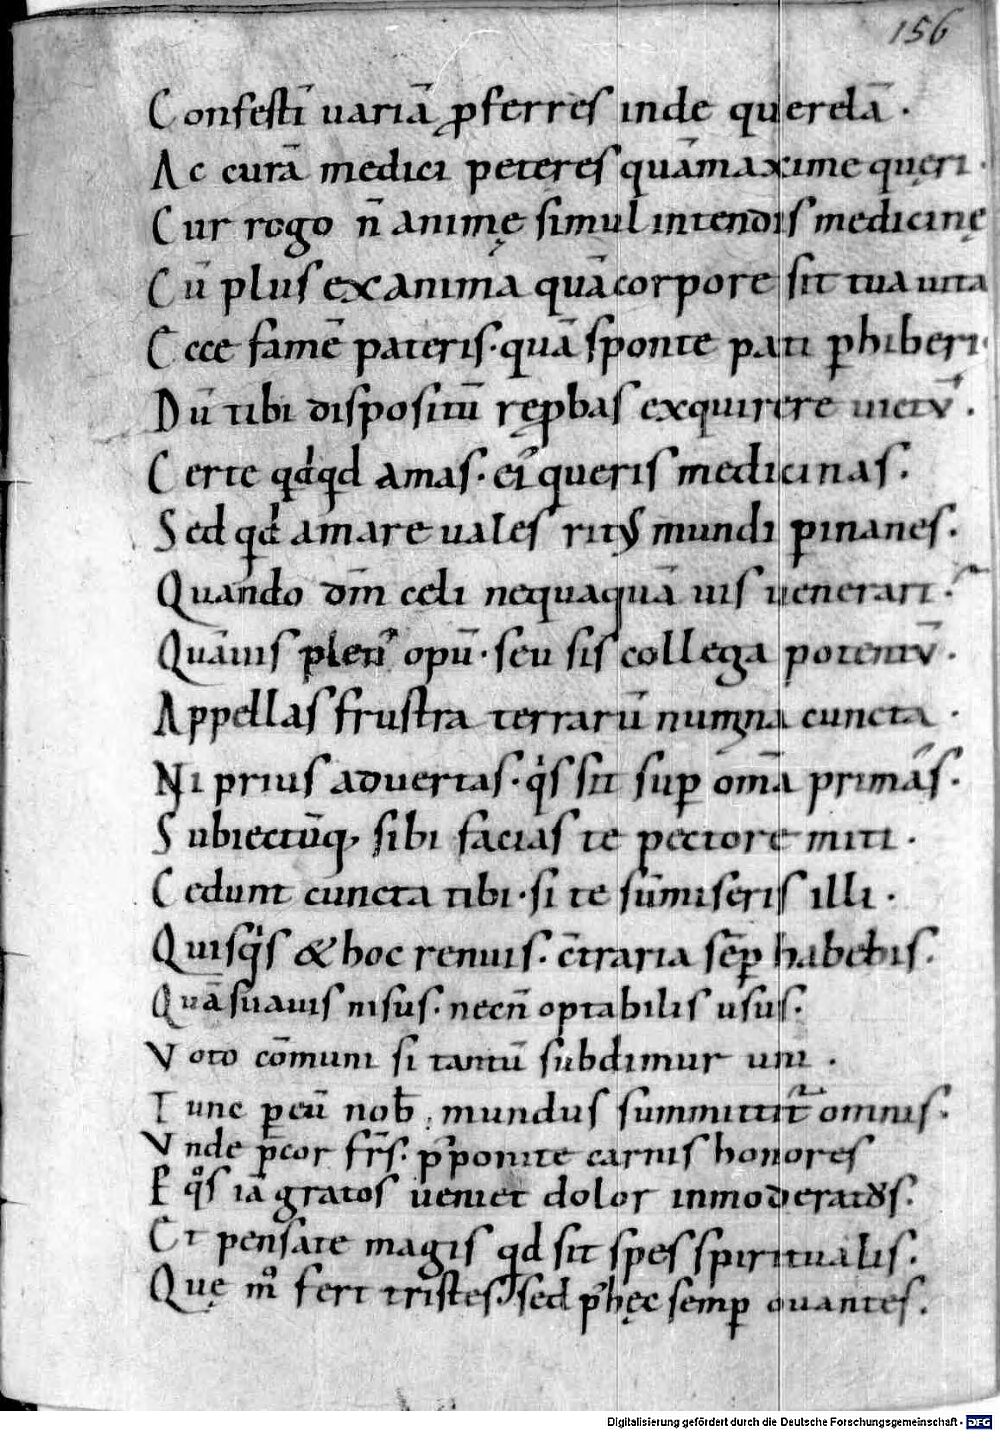 156
Confestī uariā ꝓferres inde querelā ·
Ac curā medici peteres quāmaxime quęri ·
Cur rogo n̄ animę simul intendis medicinę
Cū plus exanima quācorpore sit tua uita
Ecce famē pateris · quā sponte pati ꝑhiberi ·
Dū tibi dispositū reꝓbas exquirere
Certe qdqd amas · queris medicinas ·
Sed qd amare uales mundi ꝑ inanes ·
Quando dn̄m celi nequaquā uis uenerari ·
Quāuis opū · seu sis collega potentū ·
Appellas frustra terrarū numina cuncta ·
Ni prius aduertas · qͥs sit suꝑ om̄a primās ·
Subiectūq; sibi facias te pectore miti ·
Cedunt cuncta tibi · si te sūmiseris illi ·
Quisqͥs & hoc renuis · c̄traria sēꝑ habebis ·
Quā suauis nisus · necn̄ optabilis usus ·
Voto cōmuni si tantū subdimur uni ·
Tunc ꝑ eū nob̄ ; mundus summittit᷑ omnis ·
Vnde p̄cor fr̄s · p̄ponite carnis honores
qͦs iā gratos ueniet dolor inmoderatos ·
Et pensate magis qd sit spes spiritualis ·
Quę mͦ fert tristes · sed p̄ hęc semꝑ ouantes ·
Digitalisierung gefördert durch die Deutsche Forschungsgemeinschaft - DFG